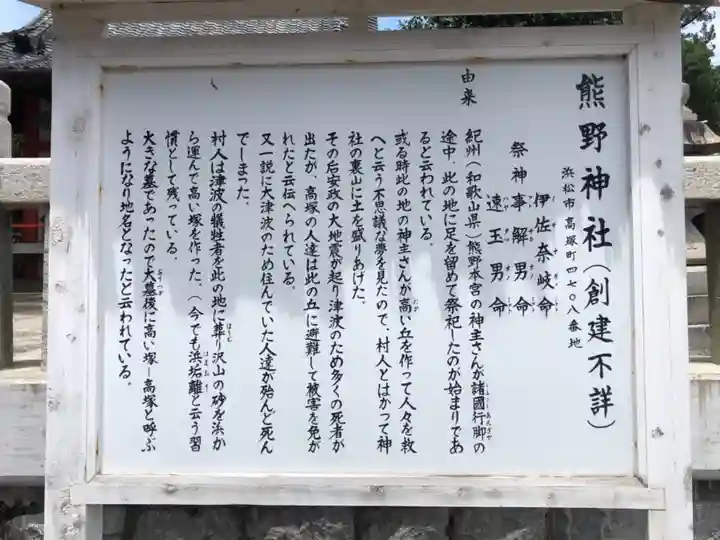 熊野神社(創建不詳)
浜松市高塚町四七〇八番地
伊佐奈岐命
祭神 事解男命
速玉男命
由来
紀州(和歌山県)熊野本宮の神主さんが諸國行脚の
途中、此の地に足を留めて祭祀したのが始まりであ
ると云われている。
或る時此の地の神主さんが高い丘を作って人々を救
へと云う不思議な夢を見たので、村人とはかって神
社の裏山に土を盛りあげた。
その后安政の大地震が起り津波のため多くの死者が
出たが、高塚の人達は此の丘に避難して被害を免が
れたと云伝へられている。
又一説に大津波のため住んでいた人達が殆んど死ん
でしまった。
村人は津波の犠牲者を此の地に葬り沢山の砂を浜か
ら運んで高い塚を作った。(今でも浜垢離と云う習
慣として残っている。
大きな墓であったので大墓後に高い塚―高塚と呼ぶ
ようになり地名となったと云われている。